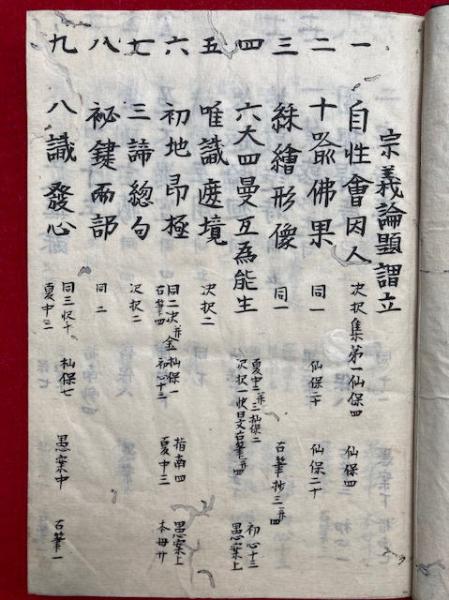 宗義論題謂立
一 自性會因人 決択集第一仙保四 仙保四
二 十喩佛果 同一 仙保二十 仙保二十
三 絲繪形像 同一 古筆抄三
四 六大四曼互爲能生 夏中二 決択一 初心十三 愚案上
五 唯識廢境 決択二
六 初地昂極 同二 古筆四 仙保一 初心十三 指南四 夏中三 愚案上
七 三諦總句 決択二
八 祕鍵两部 同二
九 八識發心 同三 夏中三 杣保七 愚案中 古筆一